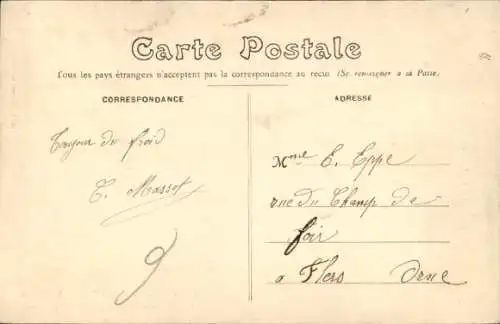 Carte Postale
Tous les pays étrangers n'acceptent pas la correspondance au recto (Se renseigner à la Poste)
CORRESPONDANCE
ADRESSE
Toujour du froid
E. Massot
9
Mme E. Eppe
rue du Champ de
foir
a Flers Orne